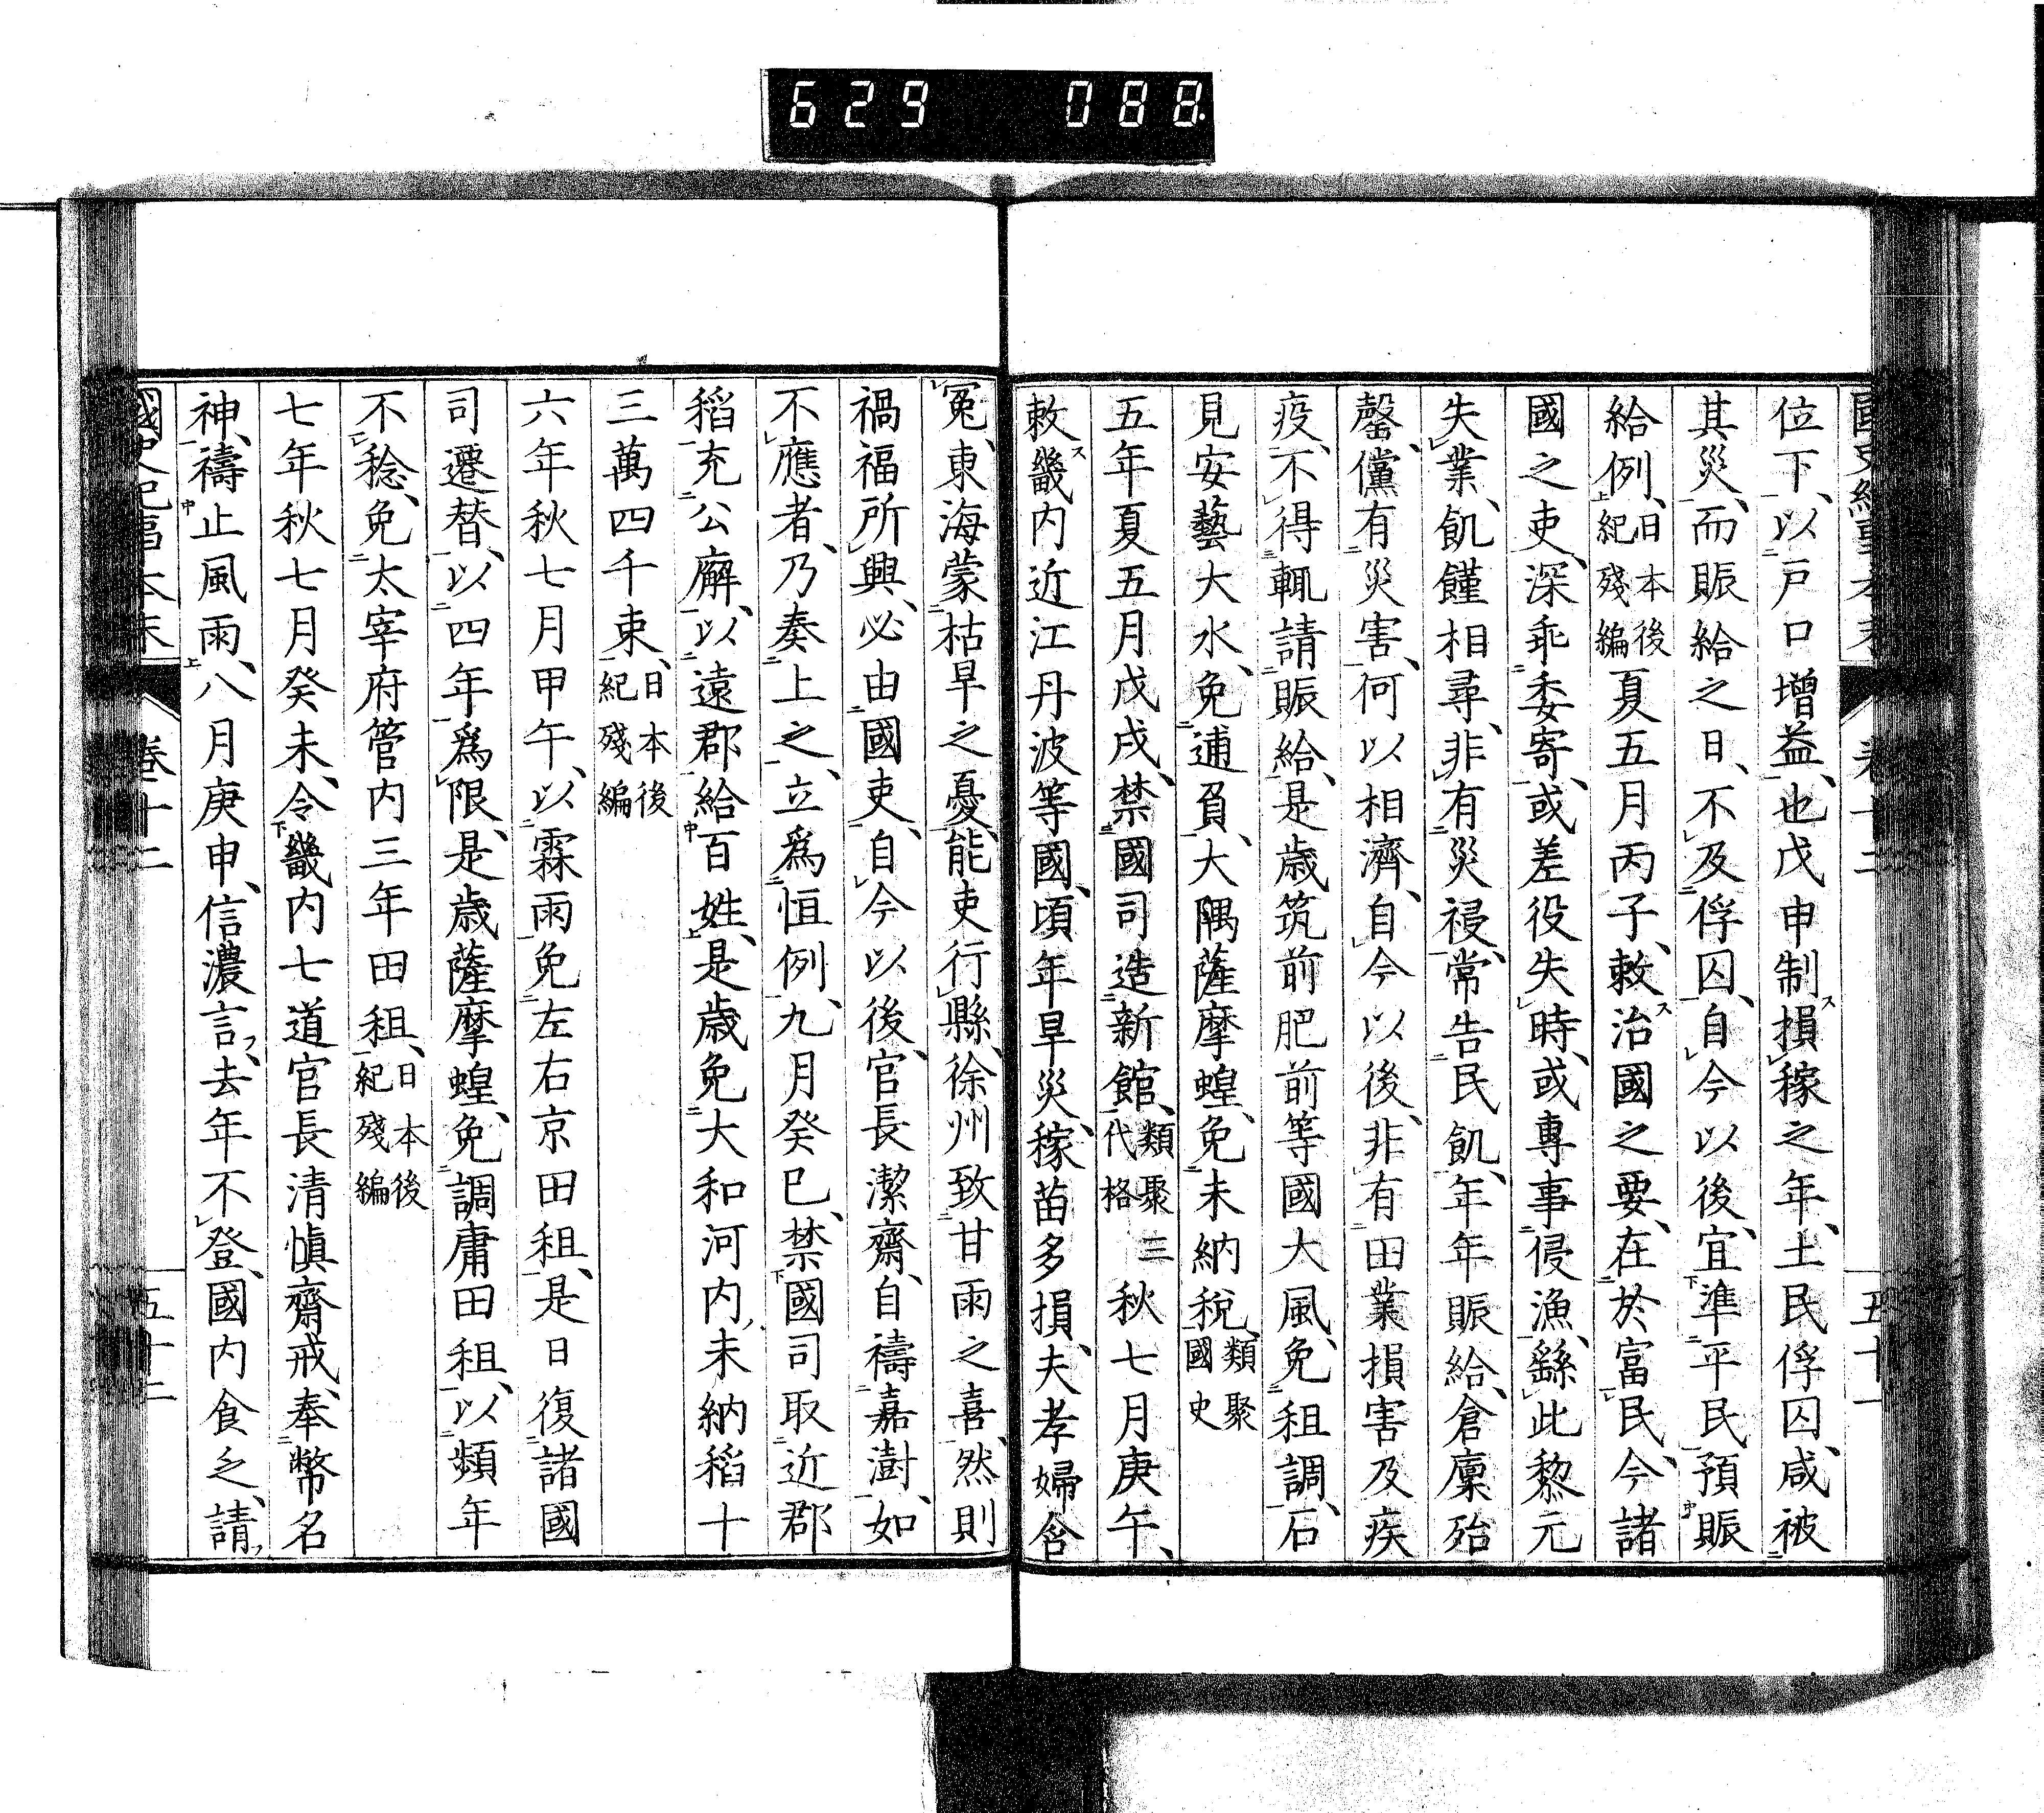 629 088
位下、以戸口増益也、戊申制、損稼之年、土民俘囚、咸被
其災、而賑給之日、不及俘囚、自今以後、宜準平民預賑
給例、日本後紀殘編夏五月丙子、敕、治國之要、在於富民、今諸
國之吏、深乖委寄、或差役失時、或專事侵漁、繇此黎元
失業、飢饉相尋、非有災祲、常告民飢、年年賑給、倉廩殆
罄、儻有災害、何以相濟、自今以後、非有田業損害及疾
疫、不得輒請賑給、是歲筑前肥前等國大風、免租調、石
見安藝大水、免逋負、大隅薩摩蝗、免未納稅、類聚國史
五年夏五月戊戌、禁國司造新館、類聚三代格秋七月庚午、
敕、畿内近江丹波等國、頃年旱災、稼苗多損、夫孝婦含
冤、東海蒙枯旱之憂、能吏行縣、徐州致甘雨之喜、然則
禍福所興、必由國吏、自今以後、官長潔齋、自禱嘉澍、如
不應者、乃奏上之、立爲恒例、九月癸巳、禁國司取近郡
稻充公廨、以遠郡給百姓、是歲免大和河内、未納稻十
三萬四千束、日本後紀殘編
六年秋七月甲午、以霖雨、免左右京田租、是日復諸國
司遷替、以四年爲限、是歲薩摩蝗、免調庸田租、以頻年
不稔、免太宰府管内三年田租、日本後紀殘編
七年秋七月癸未、令畿内七道官長清愼齋戒、奉幣名
神、禱止風雨、八月庚申、信濃言、去年不登、國内食乏、請
國史紀事本末 卷十二 五十二